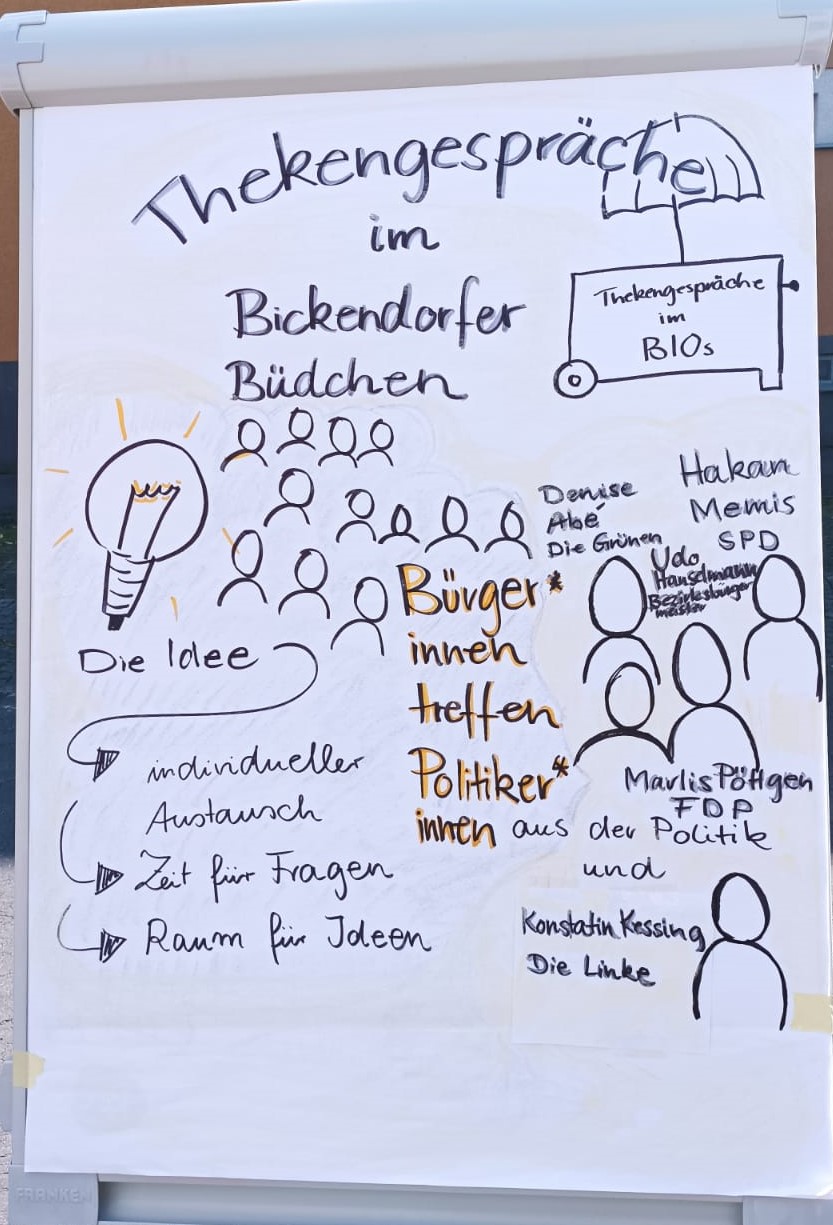 Thekengespräche
im
Bickendorfer
Büdchen
Thekengespräche
im
BIOs
Die Idee
individueller
Austausch
Zeit für Fragen
Raum für Ideen
Bürger*
innen
treffen
Politiker*
innen aus der Politik
und
Denise
Abé
Die Grünen
Hakan
Memis
SPD
Udo
Hanselmann
Bezirksbürger
meister
Marlis Pöttgen
FDP
Konstatin Kessing
Die Linke
FRANKEN